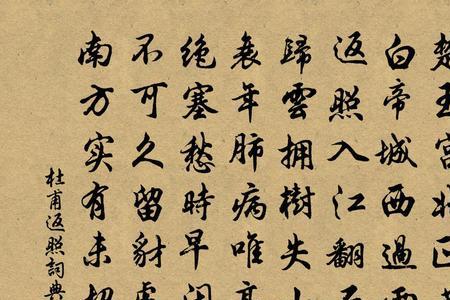 楚王宫北正
白帝城西過雨
返照入江翻石
歸雲擁樹失
衰年肺病唯高
絶塞愁時早閉
不可久留豺虎
南方实有未
杜甫返照詞典